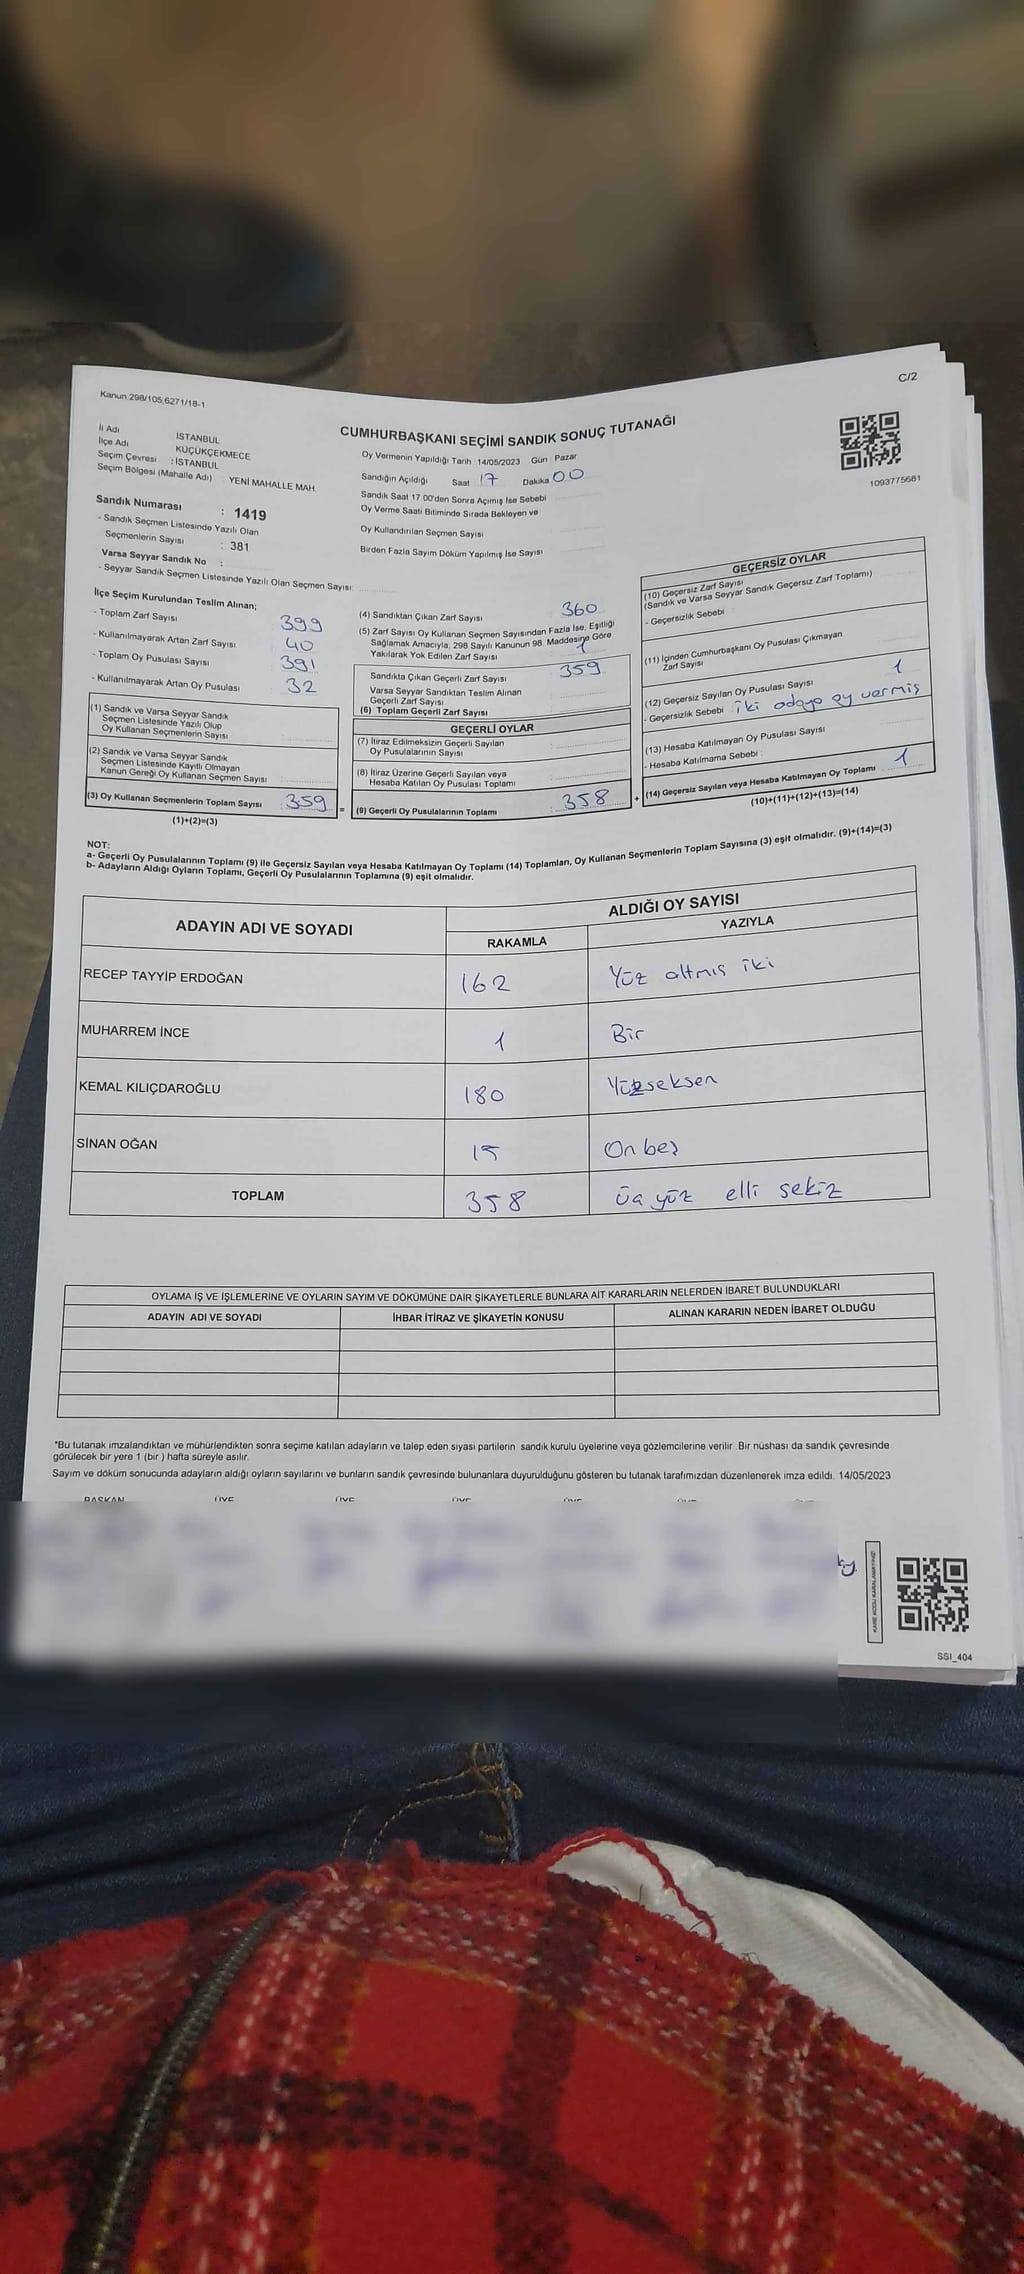 C/2
Kanun,298/105,6271/18-1
CUMHURBAŞKANI SEÇİMİ SANDIK SONUÇ TUTANAĞI
1093775681
İl Adı İSTANBUL
İlçe Adı KÜÇÜKÇEKMECE
Seçim Çevresi : İSTANBUL
Seçim Bölgesi (Mahalle Adı) YENİ MAHALLE MAH.
Sandık Numarası : 1419
- Sandık Seçmen Listesinde Yazılı Olan
Seçmenlerin Sayısı : 381
Varsa Seyyar Sandık No :
- Seyyar Sandık Seçmen Listesinde Yazılı Olan Seçmen Sayısı:
Oy Vermenin Yapıldığı Tarih :14/05/2023 Gün Pazar
Sandığın Açıldığı Saat 17 Dakika 00
Sandık Saat 17.00'den Sonra Açımış İse Sebebi
Oy Verme Saati Bitiminde Sırada Bekleyen ve
Oy Kullandırılan Seçmen Sayısı
Birden Fazla Sayım Döküm Yapılmış İse Sayısı
İlçe Seçim Kurulundan Teslim Alınan;
- Toplam Zarf Sayısı 399
- Kullanılmayarak Artan Zarf Sayısı 40
- Toplam Oy Pusulası Sayısı 391
- Kullanılmayarak Artan Oy Pusulası 32
(1) Sandık ve Varsa Seyyar Sandık
Seçmen Listesinde Yazılı Olup
Oy Kullanan Seçmenlerin Sayısı
(2) Sandık ve Varsa Seyyar Sandık
Seçmen Listesinde Kayıtlı Olmayan
Kanun Gereği Oy Kullanan Seçmen Sayısı
(3) Oy Kullanan Seçmenlerin Toplam Sayısı 359 =
(1)+(2)=(3)
(4) Sandıktan Çıkan Zarf Sayısı 360
(5) Zarf Sayısı Oy Kullanan Seçmen Sayısından Fazla İse, Eşitliği
Sağlamak Amacıyla, 298 Sayılı Kanunun 98. Maddesine Göre
Yakılarak Yok Edilen Zarf Sayısı 1
Sandıkta Çıkan Geçerli Zarf Sayısı 359
Varsa Seyyar Sandıktan Teslim Alınan
Geçerli Zarf Sayısı
(6) Toplam Geçerli Zarf Sayısı
GEÇERLİ OYLAR
(7) İtiraz Edilmeksizin Geçerli Sayılan
Oy Pusulalarının Sayısı
(8) İtiraz Üzerine Geçerli Sayılan veya
Hesaba Katılan Oy Pusulası Toplamı
(9) Geçerli Oy Pusulalarının Toplamı 358 +
GEÇERSİZ OYLAR
(10) Geçersiz Zarf Sayısı
(Sandık ve Varsa Seyyar Sandık Geçersiz Zarf Toplamı)
- Geçersizlik Sebebi :
(11) İçinden Cumhurbaşkanı Oy Pusulası Çıkmayan
Zarf Sayısı
(12) Geçersiz Sayılan Oy Pusulası Sayısı 1
- Geçersizlik Sebebi iki adaya oy vermiş
(13) Hesaba Katılmayan Oy Pusulası Sayısı
- Hesaba Katılmama Sebebi :
(14) Geçersiz Sayılan veya Hesaba Katılmayan Oy Toplamı 1
(10)+(11)+(12)+(13)=(14)
NOT:
a- Geçerli Oy Pusulalarının Toplamı (9) ile Geçersiz Sayılan veya Hesaba Katılmayan Oy Toplamı (14) Toplamları, Oy Kullanan Seçmenlerin Toplam Sayısına (3) eşit olmalıdır. (9)+(14)=(3)
b- Adayların Aldığı Oyların Toplamı, Geçerli Oy Pusulalarının Toplamına (9) eşit olmalıdır.
ADAYIN ADI VE SOYADI ALDIĞI OY SAYISI
RAKAMLA YAZIYLA
RECEP TAYYİP ERDOĞAN 162 Yüz altmış iki
MUHARREM İNCE 1 Bir
KEMAL KILIÇDAROĞLU 180 Yüzseksen
SİNAN OĞAN 15 On beş
TOPLAM 358 Üç yüz elli sekiz
OYLAMA İŞ VE İŞLEMLERİNE VE OYLARIN SAYIM VE DÖKÜMÜNE DAİR ŞİKAYETLERLE BUNLARA AİT KARARLARIN NELERDEN İBARET BULUNDUKLARI
ADAYIN ADI VE SOYADI İHBAR İTİRAZ VE ŞİKAYETİN KONUSU ALINAN KARARIN NEDEN İBARET OLDUĞU
*Bu tutanak imzalandıktan ve mühürlendikten sonra seçime katılan adayların ve talep eden siyasi partilerin sandık kurulu üyelerine veya gözlemcilerine verilir. Bir nüshası da sandık çevresinde
görülecek bir yere 1 (bir ) hafta süreyle asılır.
Sayım ve döküm sonucunda adayların aldığı oyların sayılarını ve bunların sandık çevresinde bulunanlara duyurulduğunu gösteren bu tutanak tarafımızdan düzenlenerek imza edildi. 14/05/2023
BAŞKAN ÜYE ÜYE ÜYE ÜYE ÜYE ÜYE
KARE KODU KARALAMAYINIZ!
SSI_404